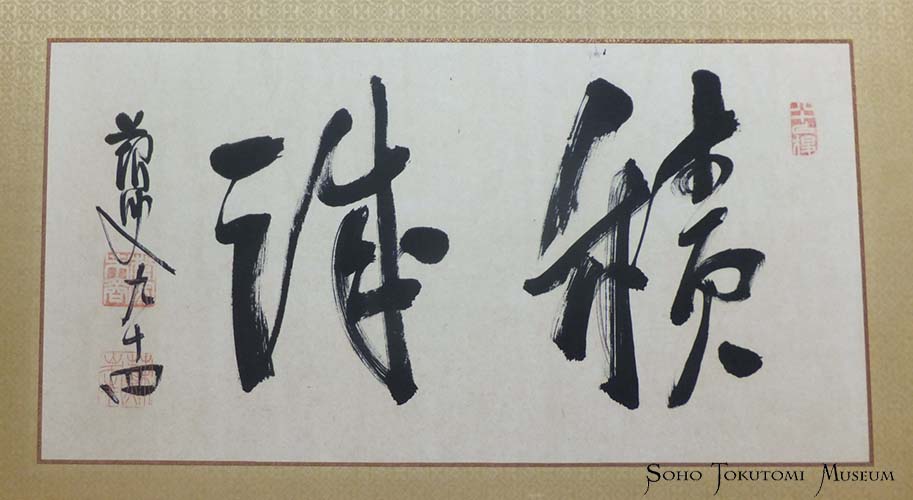 積誠
蘇叟九十四
SOHO TOKUTOMI MUSEUM